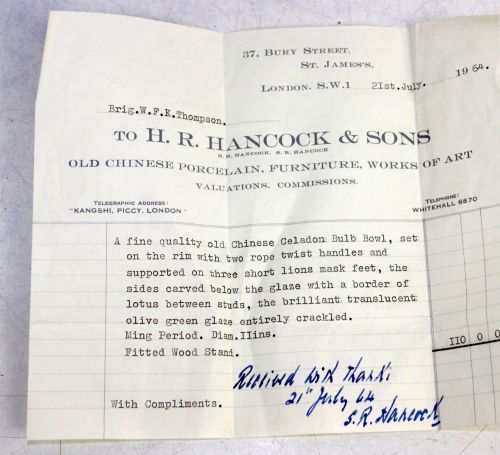 37, BURY STREET,
ST. JAMES'S,
LONDON, S.W.1 21st.July. 1964.
Brig.W.F.K.Thompson.
TO H. R. HANCOCK & SONS
H. R. HANCOCK. S. R. HANCOCK
OLD CHINESE PORCELAIN, FURNITURE, WORKS OF ART
VALUATIONS. COMMISSIONS.
TELEGRAPHIC ADDRESS: TELEPHONE:
"KANGSHI, PICCY, LONDON" WHITEHALL 6670
A fine quality old Chinese Celadon Bulb Bowl, set
on the rim with two rope twist handles and
supported on three short lions mask feet, the
sides carved below the glaze with a border of
lotus between studs, the brilliant translucent
olive green glaze entirely crackled.
Ming Period. Diam.IIins. IIO 0 0
Fitted Wood Stand.
Received with thanks
21st July 64
S.R. Hancock
With Compliments.